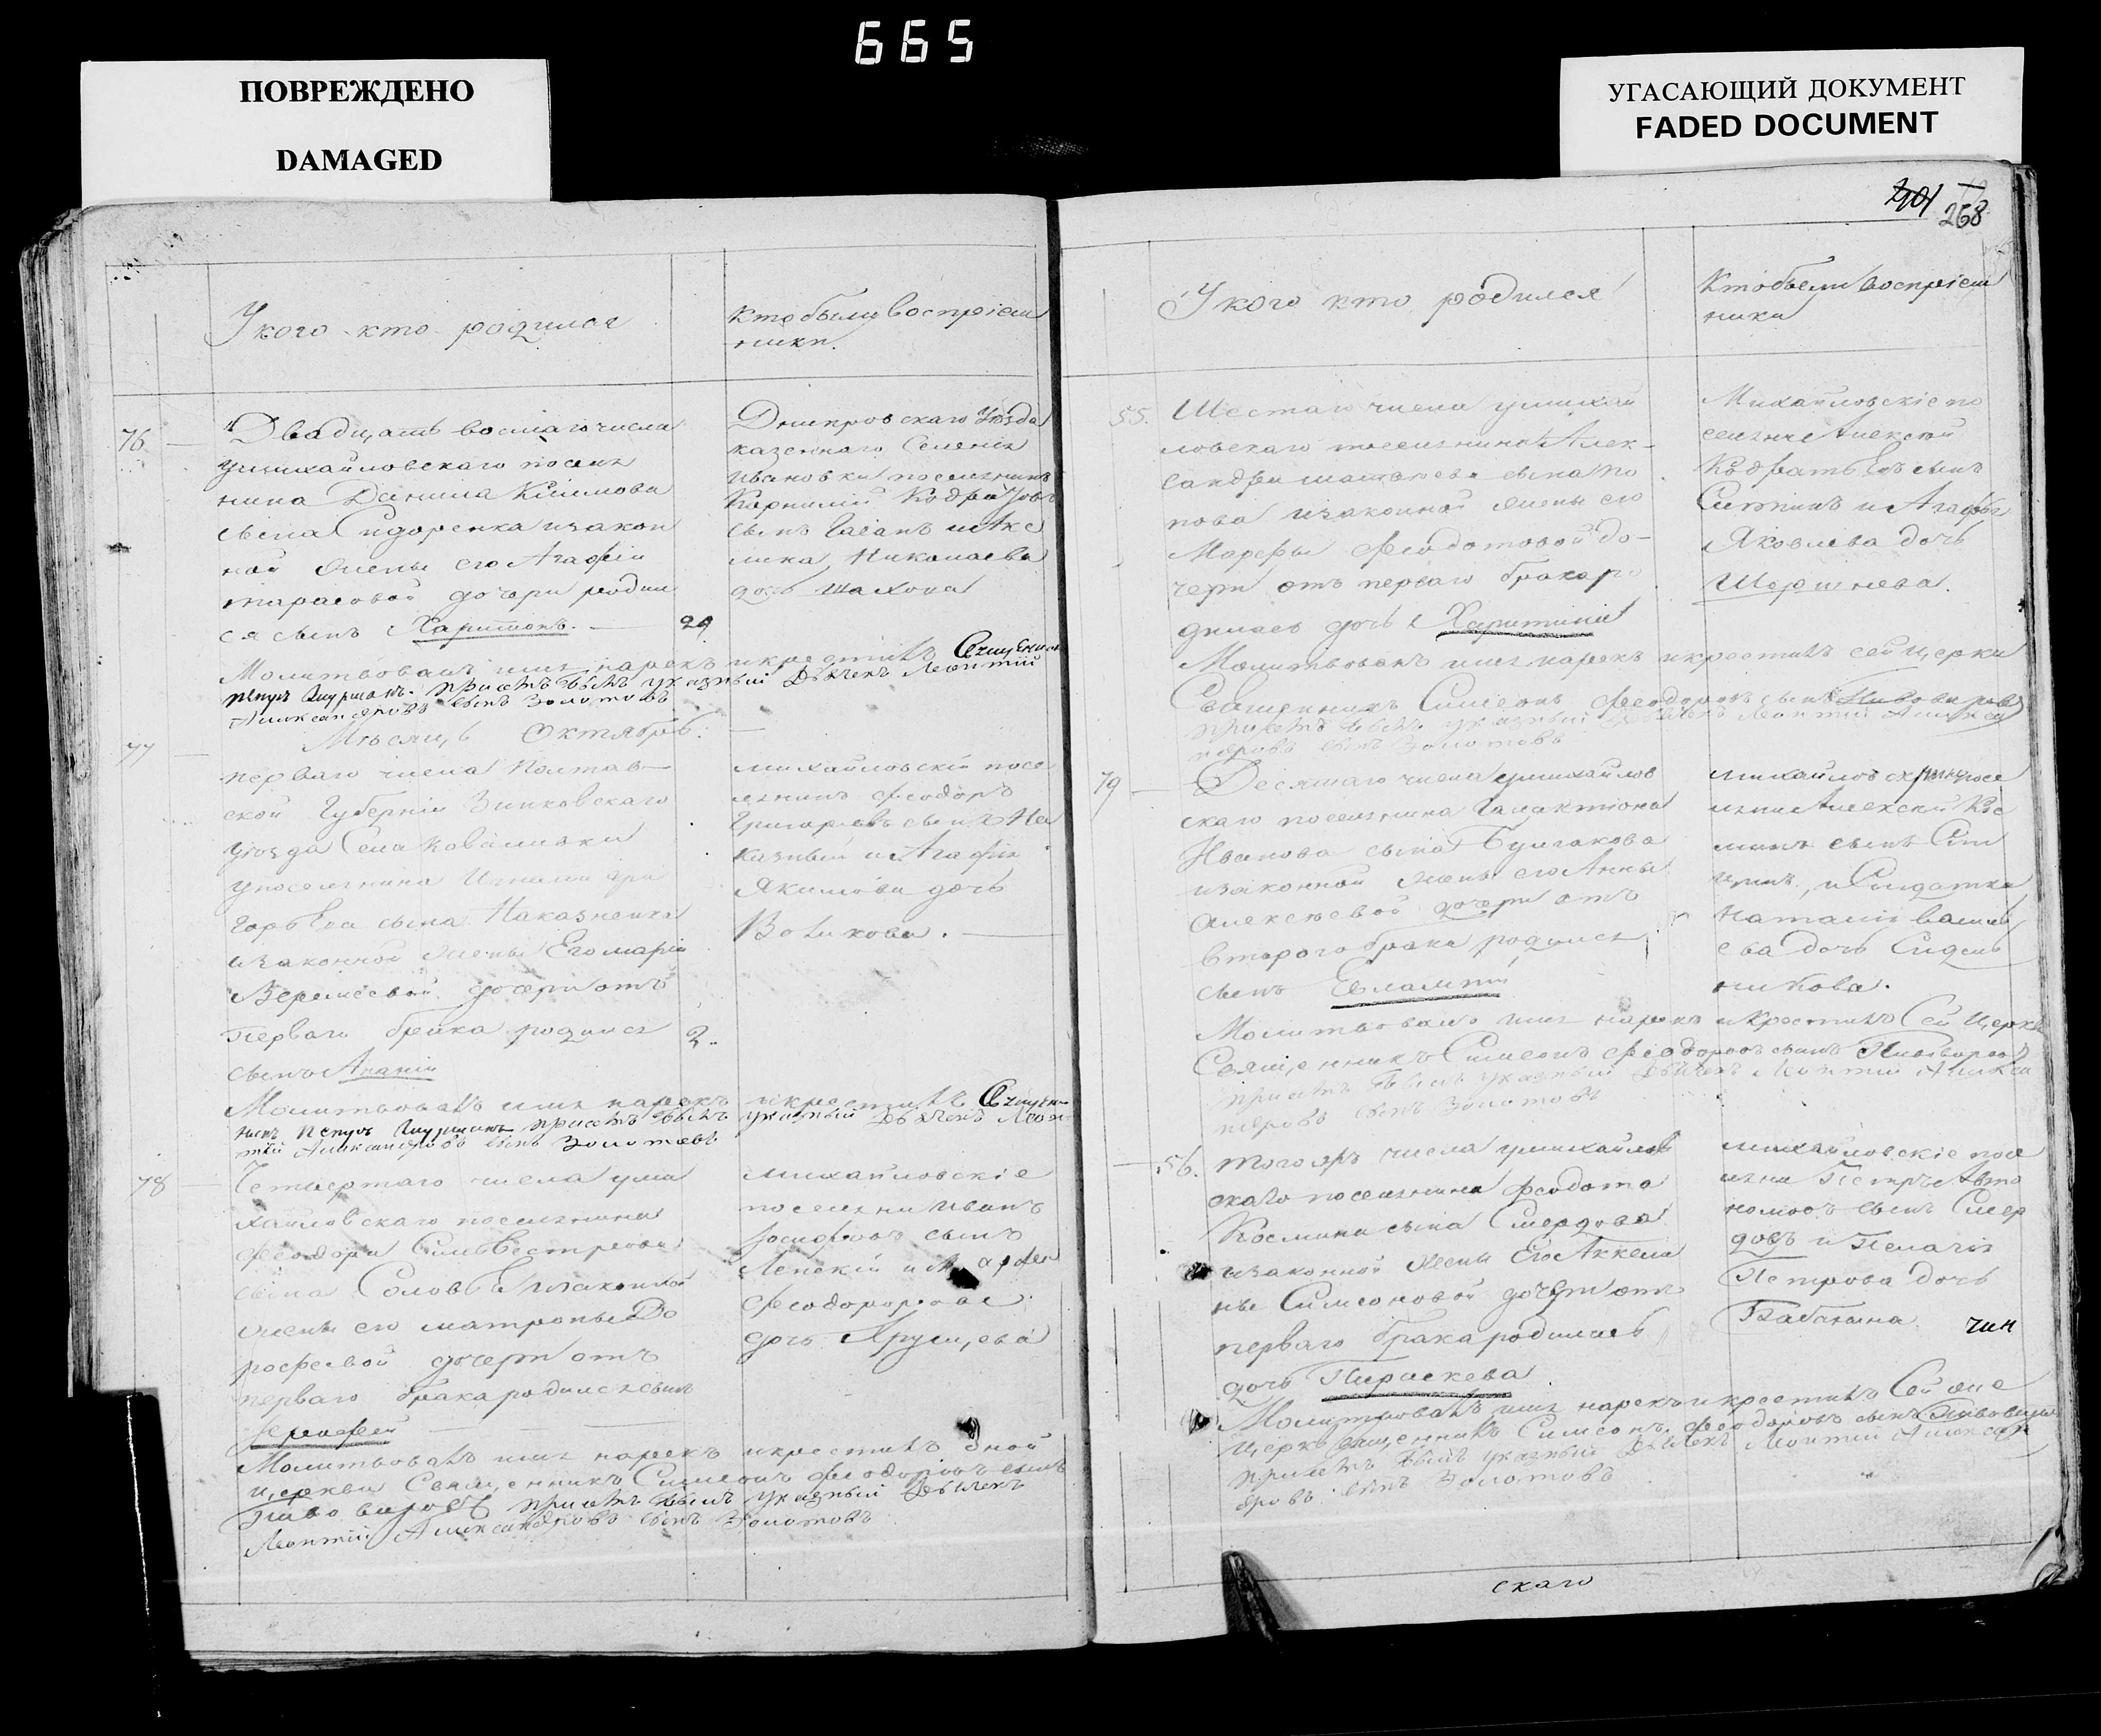 665
ПОВРЕЖДЕНО
DAMAGED
УГАСАЮЩИЙ ДОКУМЕНТ
FADED DOCUMENT
401
268
Укого кто родился
кто были воспрiем
ники.
76
Двадцать восмаго числа
умихайловскаго посел
нина Данила Климова
сына Сидоренка изакон
ной жены его Агафiи
тарасовой дочери родил
ся сынъ Харитонъ.
29
Днепровскаго Уезда
казеннаго Селенiя
ивановки поселянинъ
Корнилiй
сынъ
Николаева
дочь
Молитвовалъ имя нарекъ икрестилъ Священ
причетъ былъ указный Дьячекъ Леонтiй
Александровъ сынъ Золотовъ
Месяцъ Октябрь.
77
перваго числа Полтав
ской Губернiи Зинковскаго
уезда Села Ковалевки
упоселянина
горьева сына Наказненка
изаконной жены Его марiи
дочери отъ
перваго брака родился
сынъ Ананiй
2
михайловскiй посе
лянинъ Феодоръ
Григорьевъ сынъ На
казный и Агафiя
Якимова дочь
Волкова.
Молитвовалъ имя нарекъ икрестилъ Священ
никъ причетъ былъ указный Дьячекъ Леон
тiй Александровъ сынъ Золотовъ
78
Четвертаго числа уми
хайловскаго поселянина
Феодора Сильвестрова
сына изаконной
жены его матроны До
рофеевой дочери отъ
перваго брака родился сынъ
Iерофей
михайловскiе
поселяни иванъ
Iосифовъ сынъ
Ленскiй
Феодорова
дочь
Молитвовалъ имя нарекъ икрестилъ оной
церкви Священникъ Симеонъ Феодоровъ сынъ
Пивоваровъ причетъ былъ указный Дьячекъ
Леонтiй Александровъ сынъ Золотовъ
Укого кто родился
Кто были воспрiем
ники
55.
Шестаго числа умихай
ловскаго поселянина Алек-
сандра сына По
пова изаконной жены его
Марфы Феодотовой до-
чери отъ перваго брака ро
дилась дочь Харитинiя
Михайловскiе по
селяне Алексей
Кодратьевъ сынъ
Ситникъ и Агафья
Яковлева дочь
Молитвовалъ имя нарекъ икрестилъ сей церкви
Священникъ Симеонъ Феодоровъ сынъ Пивоваровъ
причетъ былъ указный Дьячекъ Леонтiй Алексан
дровъ сынъ Золотовъ
79
Десятаго числа умихайлов
скаго поселянина Галактiона
Иванова сына Булгакова
изаконной жены его Анны
Алексеевой дочери отъ
втораго брака родился
сынъ Евлампiй
посе
ляни Алексей Кос
минъ сынъ
и Солдатка
Наталiя
ева дочь Сидель
никова.
Молитвовалъ имя нарекъ икрестилъ Сей Церкви
Священникъ Симеонъ Феодоровъ сынъ Пивоваровъ
причетъ былъ указный Дьячекъ Леонтiй Алексан
дровъ сынъ Золотовъ
56.
тогожъ числа умихайлов
скаго поселянина Феодота
Космина сына Смердова
изаконной жены Его Аккели
ны Симеоновой дочери отъ
перваго брака родилась
дочь Параскева
михайловскiе посе
ляни Петръ Авто
номовъ сынъ Смер
довъ и Пелагiя
Петрова дочь
Бабанина
чин
Молитвовалъ имя нарекъ икрестилъ Сей же
церкви священникъ Симеонъ Феодоровъ сынъ Пивоваровъ
причетъ былъ указный Дьячекъ Леонтiй Алексан
дровъ сынъ Золотовъ
скаго